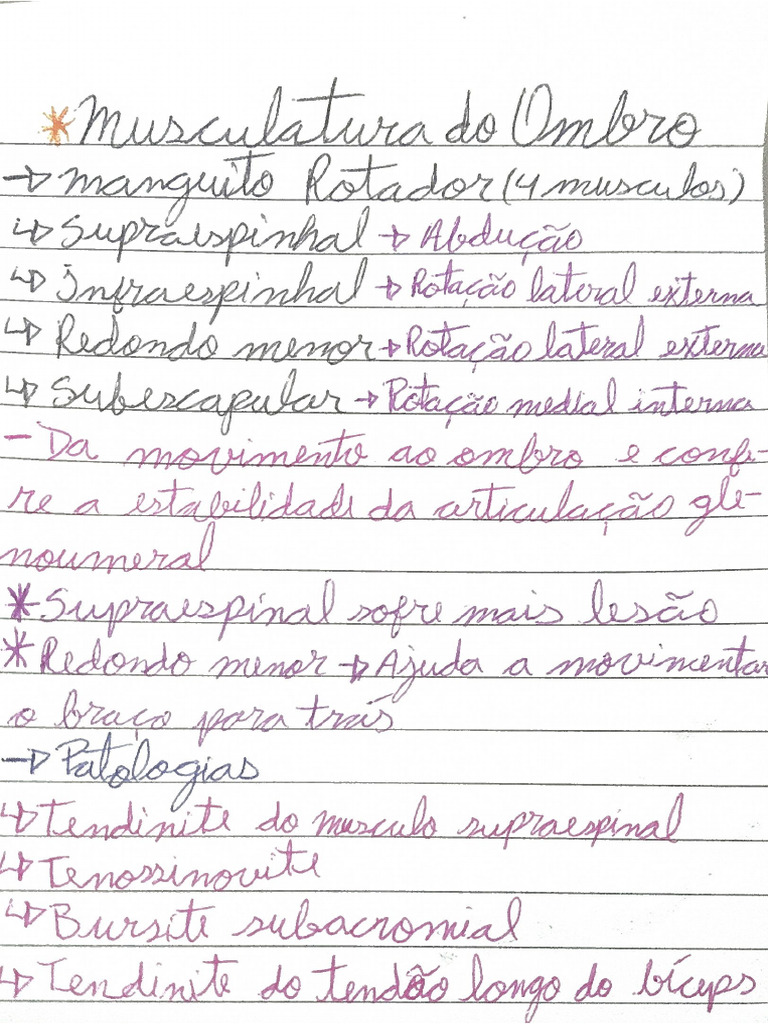 * Musculatura do Ombro
→ manguito Rotador (4 musculos)
↳ Supraespinhal → Abdução
↳ Infraespinhal → Rotação lateral externa
↳ Redondo menor → Rotação lateral externa
↳ Subescapular → Rotação medial interna
- Da movimento ao ombro e confe-
re a estabilidade da articulação gle-
noumeral
* Supraespinal sofre mais lesão
* Redondo menor → Ajuda a movimentar
o braço para trás
→ Patologias
↳ Tendinite do musculo supraespinal
↳ Tenossinovite
↳ Bursite subacromial
↳ Tendinite do tendão longo do bíceps